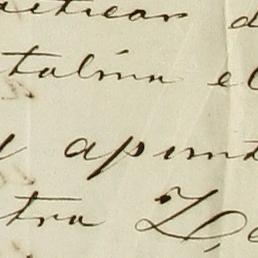 acticar d
talina el
y apunt
tra Z,